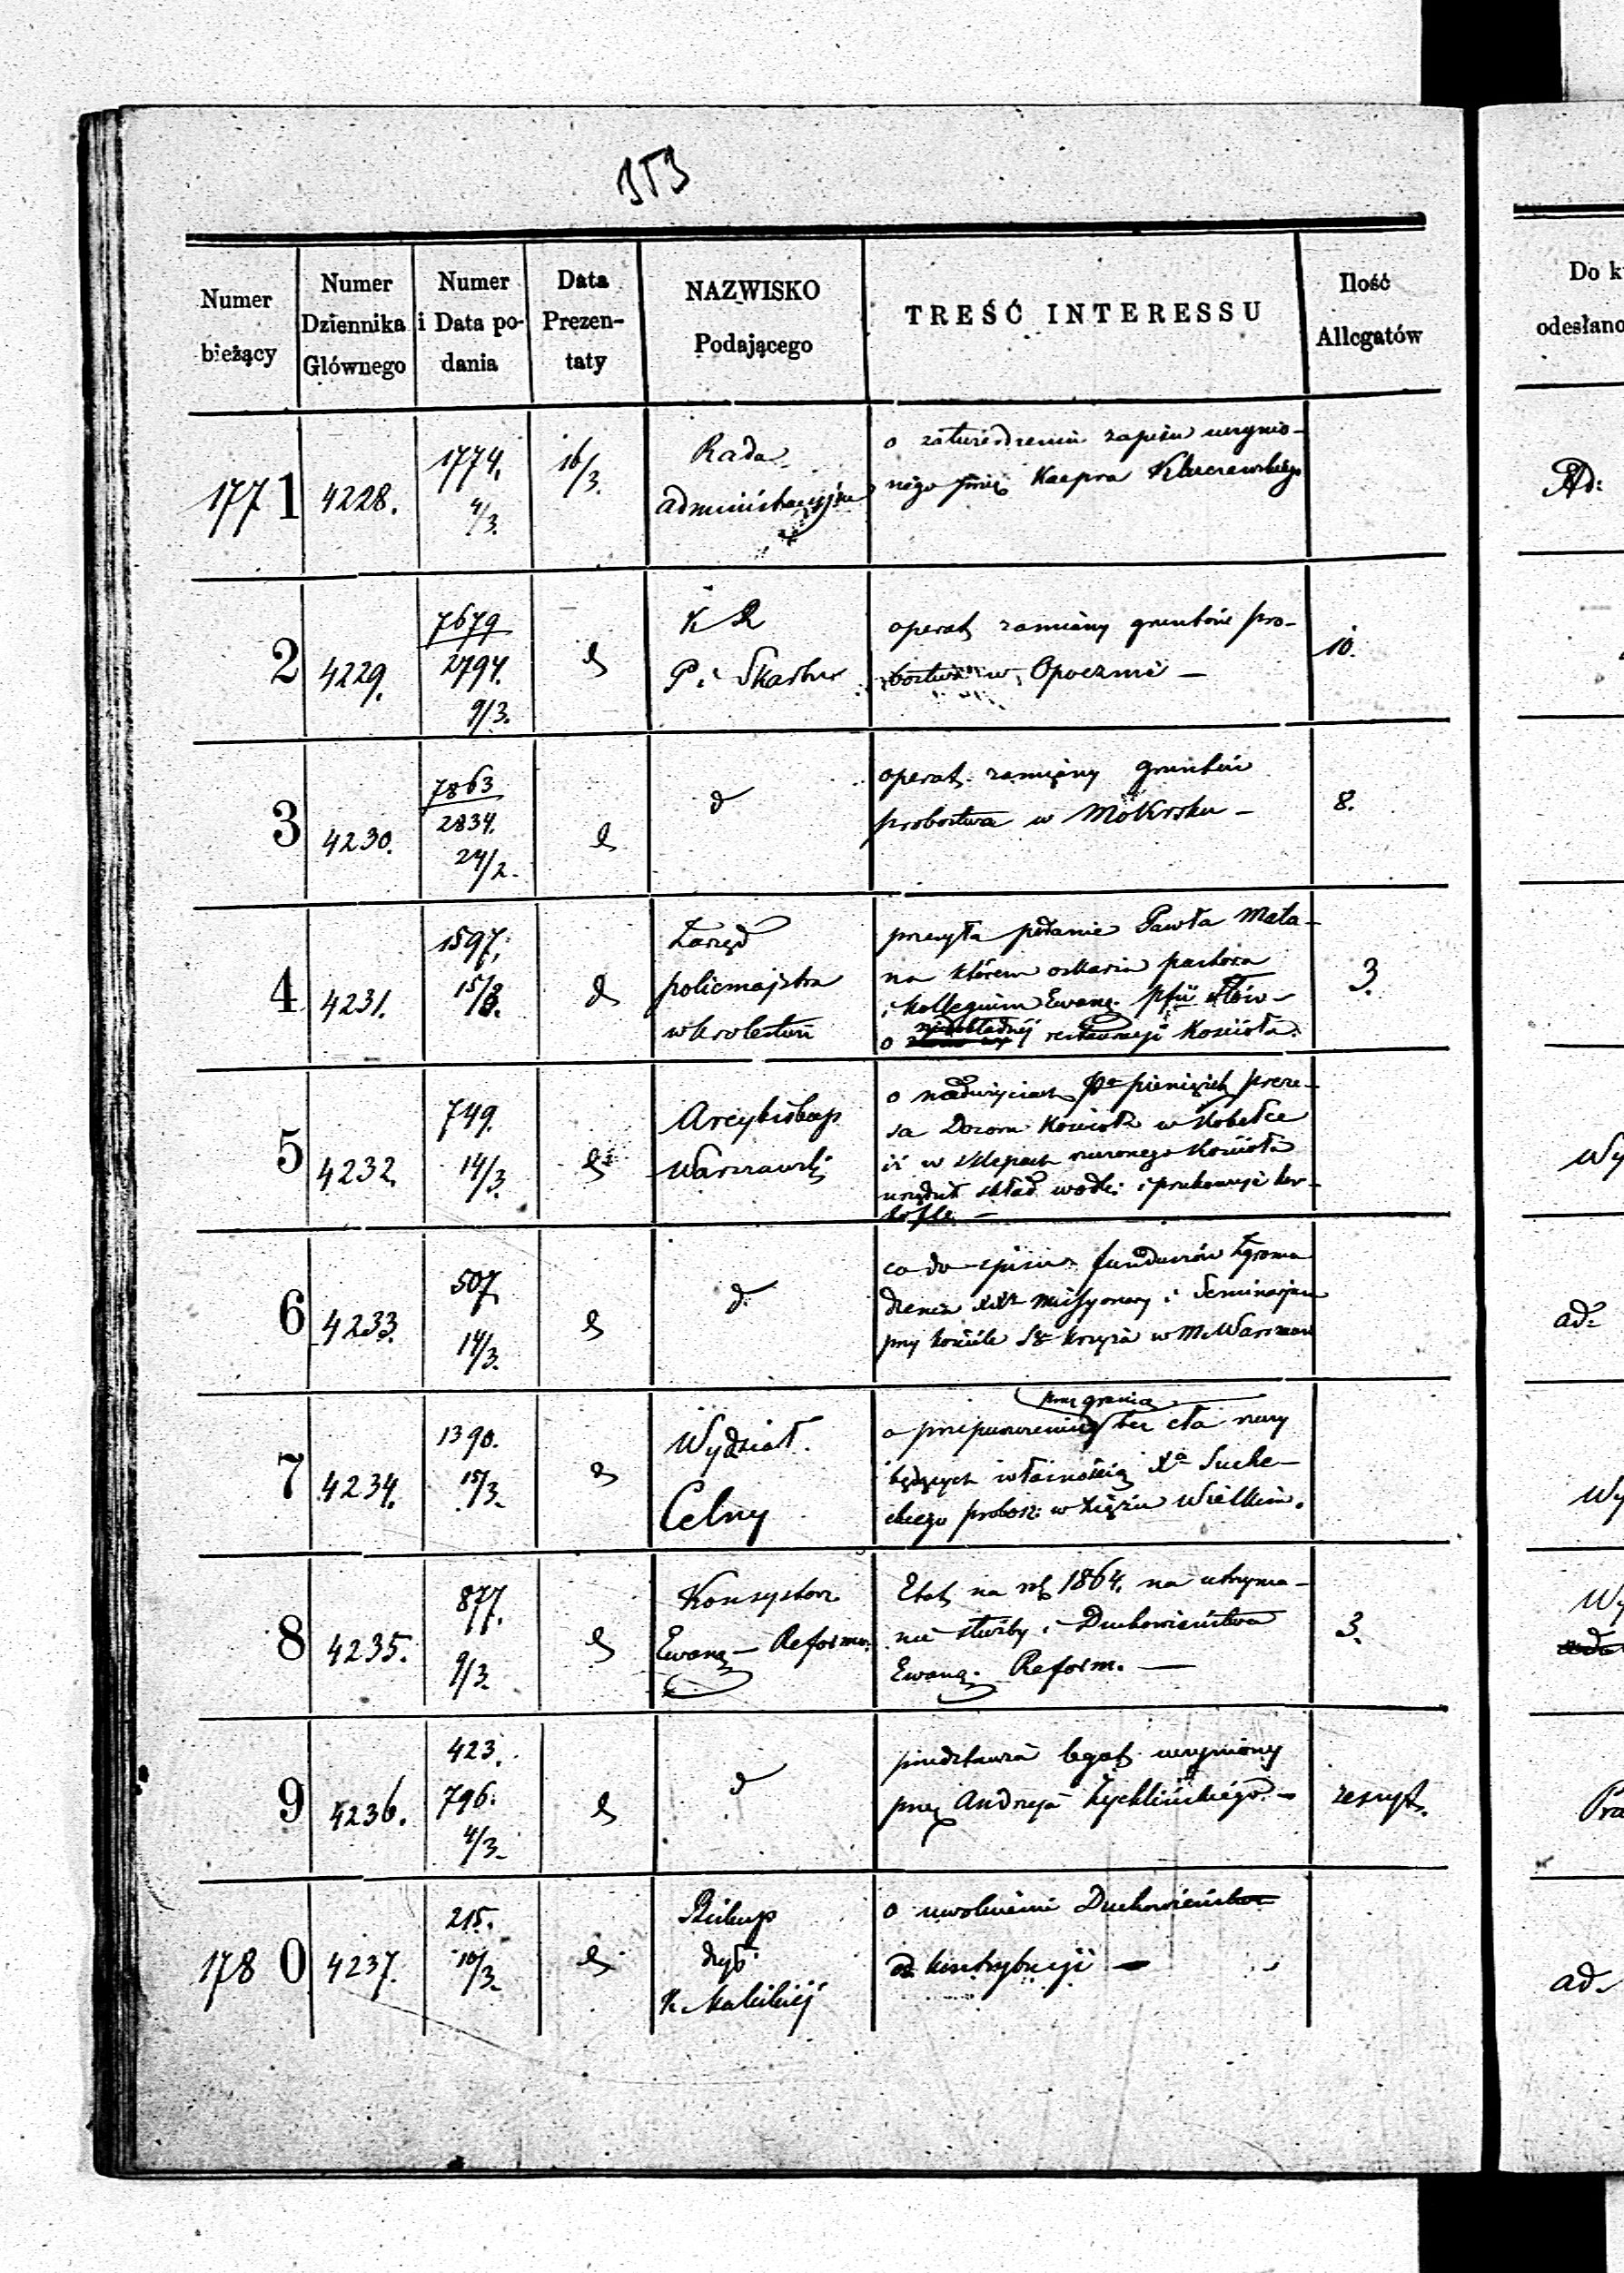 353
Numer bieżący
Numer Dziennika Głównego
Numer i Data podania
Data Prezentaty
NAZWISKO Podającego
TREŚĆ INTERESSU
Ilość Allegatów
Do k
odesłano
1771 4228. 1774. 4/3. 16/3. Rada administracyjna
o zatwierdzenie zapisu uczynio-
nego przez Kacpra Kluczewskiego
Ad:
2 4229. 7679 2794. 9/3. d K R P. i Skarbu
operat zamiany gruntów pro-
bostwa w Opocznie —
10.
3 4230. 7863 2834. 24/2. d d
operat zamiany gruntów
probostwa w Mokrsku —
8.
4 4231. 1597. 15/3. d Zarząd policmajstra w Królestwie
przesyła podanie Pawła Mata-
na którem oskarża pastora
i kollegium Ewang.
o niedokładnej restauracji Kościoła.
3.
5 4232. 749. 14/3. d Arcybiskup Warszawski
o nadużyciach pieniężnych preze-
sa Dozoru Kościoła w Kobełce
iż w sklepach murowanego Kościoła
urządził skład wódki i przechowuje kar-
tofle —
Wy
6 4233. 507. 14/3. d d.
co do spisu funduszów Zgroma
dzenia XX Missyonarzy i Seminarjum
przy kościele Sgo Krzyża w M. Warszawie
ad.
7 4234. 1390. 15/3. d Wydział Celny
przez granicę
o przepuszczenie bez cła rzeczy
będących własnością Xa Suche-
ckiego probosz: w Księżu Wielkim.
Wy
8 4235. 877. 9/3. d Konsystorz Ewang — Reform.
Etat na rok 1864. na utrzyma-
nie służby i Duchowieństwa
Ewang. Reform. —
3.
Wy
9 4236. 423. 796. 4/3. d d
przedstawia legat uczyniony
przez Andrzeja Żychlińskiego. —
zeszyt.
Prze
1780 4237. 215. 10/3. d Biskup dyec K. Kaliskiej
o uwolnienie Duchowieństwa
od kontrybucji —
ad.